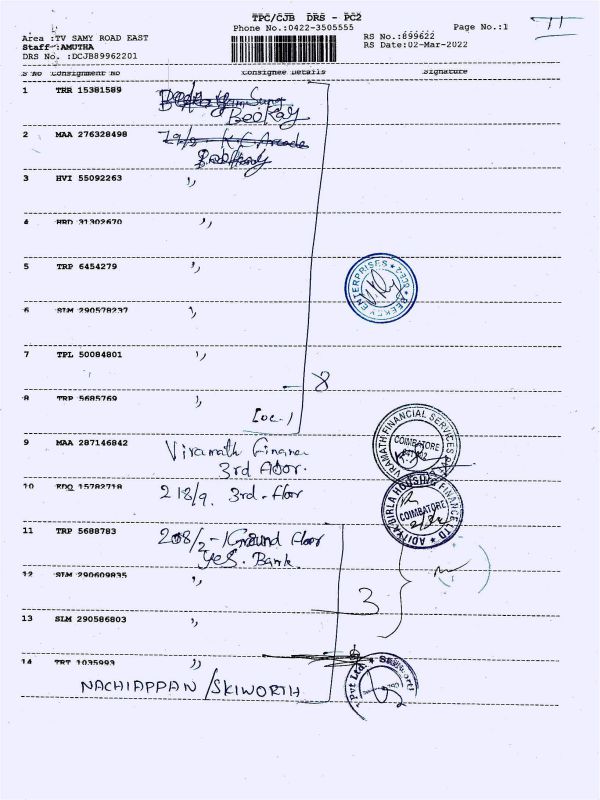 TPC/CJB DRS - PC2
11
Phone No.:0422-3505555
Page No.:1
Area :TV SAMY ROAD EAST
RS No.:899622
Staff :AMUTHA
RS Date:02-Mar-2022
DRS No. :DCJB89962201
S No Consignment No Consignee Details Signature
1 TRR 15381589
BeeKay
2 MAA 276328498
3 HVI 55092263 ,,
4 HRD 31302670 ,,
5 TRP 6454279 ,,
BEEKAY ENTERPRISES
6 SLM 290578237 ,,
7 TPL 50084801 ,,
8
8 TRP 5685769 ,,
9 MAA 287146842 Viramath Finance
3rd floor.
VIRAMATH FINANCIAL SERVICES
COIMBATORE
10 KDQ 15782718 218/9. 3rd-floor
ADITYA BIRLA HOUSING FINANCE LTD
COIMBATORE
11 TRP 5688783 208/2 - Ground floor
Yes. Bank.
12 SLM 290609835 ,,
3
13 SLM 290586803 ,,
14 TRT 1035993 ,,
NACHIAPPAN / SKIWORTH
Pvt Ltd.